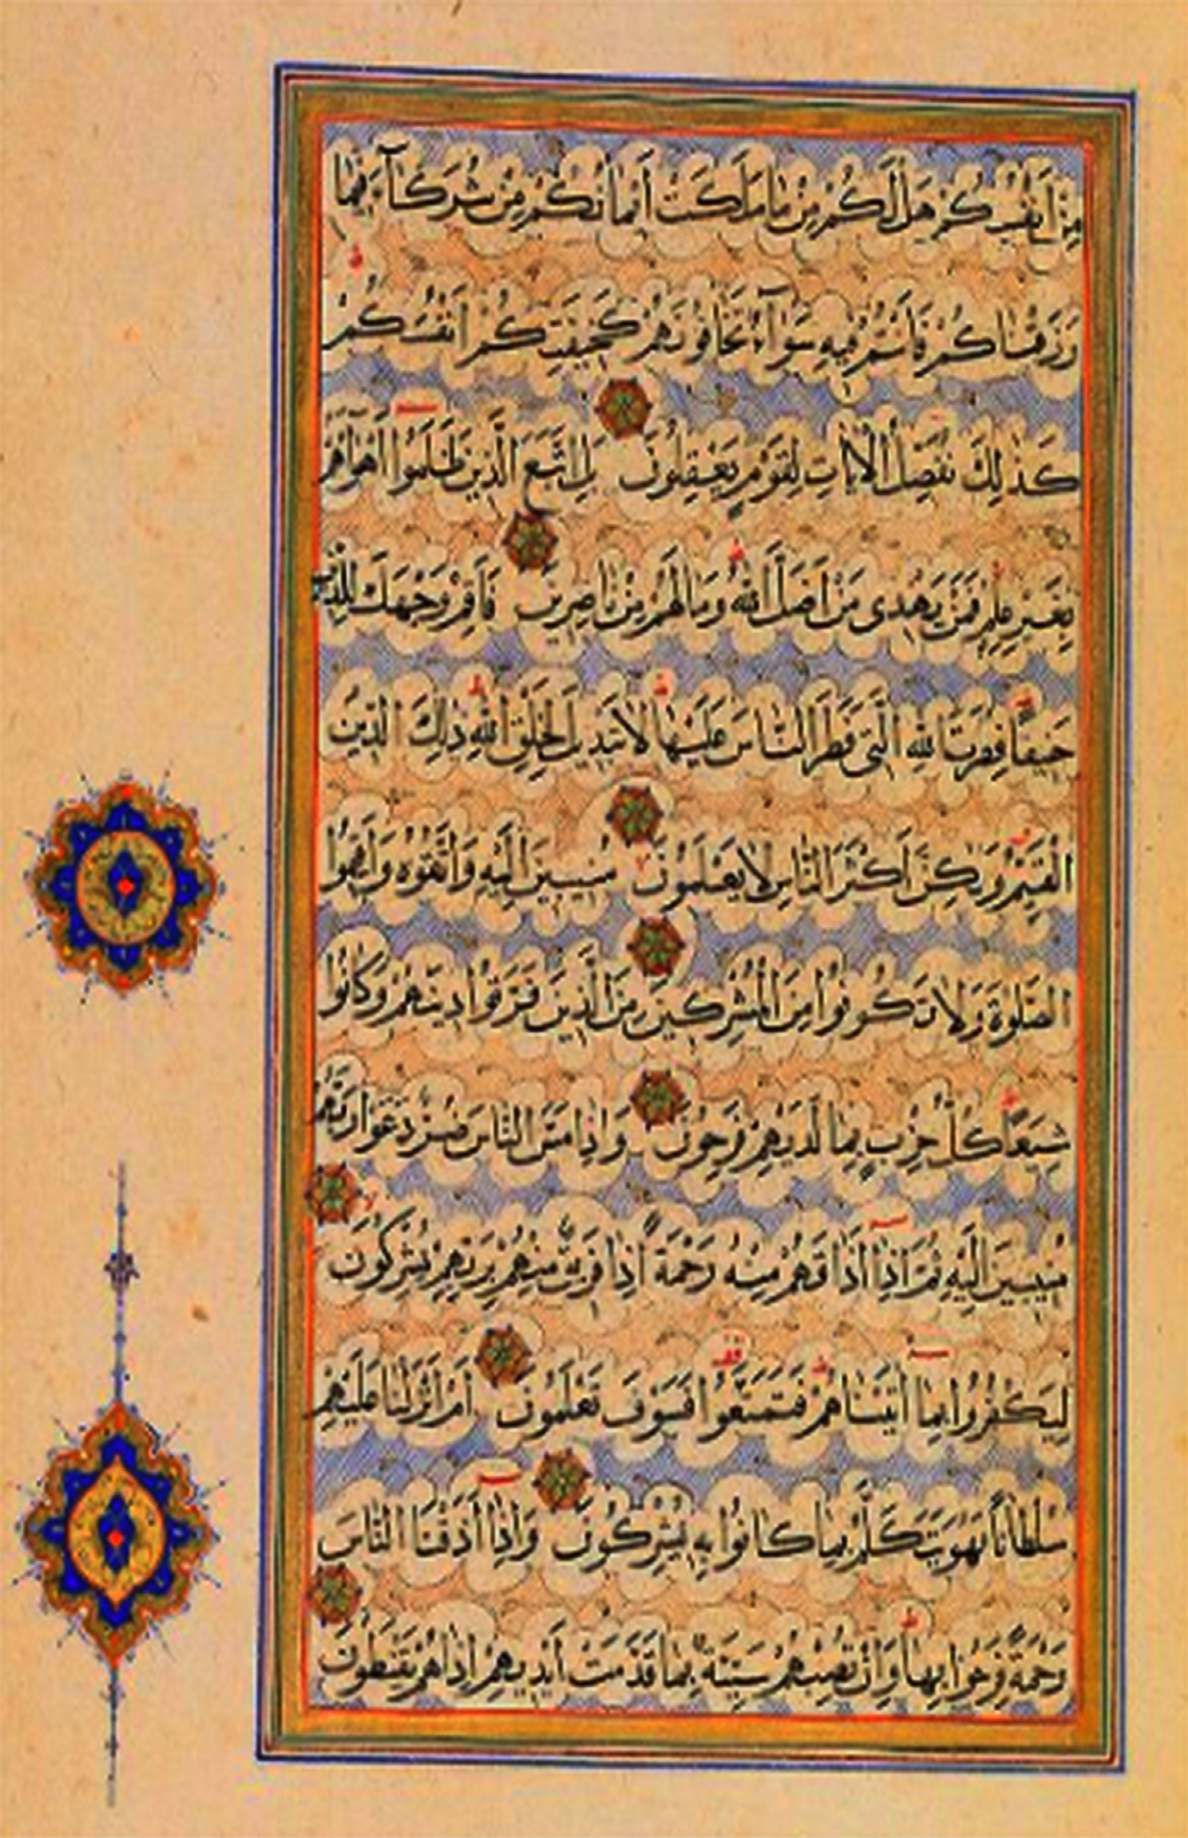 مِنْ أَنْفُسِكُمْ هَلْ لَكُمْ مِنْ مَا مَلَكَتْ أَيْمَانُكُمْ مِنْ شُرَكَآءَ فِيمَا
رَزَقْنَاكُمْ فَأَنْتُمْ فِيهِ سَوَآءٌ تَخَافُونَهُمْ كَخِيفَتِكُمْ أَنْفُسَكُمْ
كَذٰلِكَ نُفَصِّلُ الْآيَاتِ لِقَوْمٍ يَعْقِلُونَ بَلِ اتَّبَعَ الَّذِينَ ظَلَمُوا أَهْوَاءَهُمْ
بِغَيْرِ عِلْمٍ فَمَنْ يَهْدِى مَنْ أَضَلَّ اللّٰهُ وَمَا لَهُمْ مِنْ نَاصِرِينَ فَأَقِمْ وَجْهَكَ لِلدِّينِ
حَنِيفًا فِطْرَتَ اللّٰهِ الَّتِى فَطَرَ النَّاسَ عَلَيْهَا لَا تَبْدِيلَ لِخَلْقِ اللّٰهِ ذٰلِكَ الدِّينُ
الْقَيِّمُ وَلٰكِنَّ أَكْثَرَ النَّاسِ لَا يَعْلَمُونَ مُنِيبِينَ إِلَيْهِ وَاتَّقُوهُ وَأَقِيمُوا
الصَّلٰوةَ وَلَا تَكُونُوا مِنَ الْمُشْرِكِينَ مِنَ الَّذِينَ فَرَّقُوا دِينَهُمْ وَكَانُوا
شِيَعًا كُلُّ حِزْبٍ بِمَا لَدَيْهِمْ فَرِحُونَ وَإِذَا مَسَّ النَّاسَ ضُرٌّ دَعَوْا رَبَّهُمْ
مُنِيبِينَ إِلَيْهِ ثُمَّ إِذَا أَذَاقَهُمْ مِنْهُ رَحْمَةً إِذَا فَرِيقٌ مِنْهُمْ بِرَبِّهِمْ يُشْرِكُونَ
لِيَكْفُرُوا بِمَا آتَيْنَاهُمْ فَتَمَتَّعُوا فَسَوْفَ تَعْلَمُونَ أَمْ أَنْزَلْنَا عَلَيْهِمْ
سُلْطَانًا فَهُوَ يَتَكَلَّمُ بِمَا كَانُوا بِهِ يُشْرِكُونَ وَإِذَا أَذَقْنَا النَّاسَ
رَحْمَةً فَرِحُوا بِهَا وَإِنْ تُصِبْهُمْ سَيِّئَةٌ بِمَا قَدَّمَتْ أَيْدِيهِمْ إِذَا هُمْ يَقْنَطُونَ